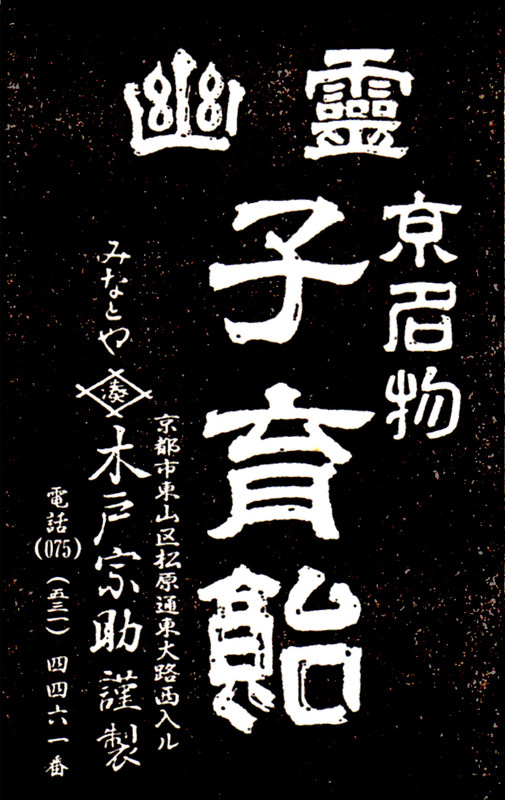 幽靈
京名物
子育飴
京都市東山区松原通東大路西入ル
みなとや 湊 木戸宗助 謹製
電話(075)(五三一)四四六一番